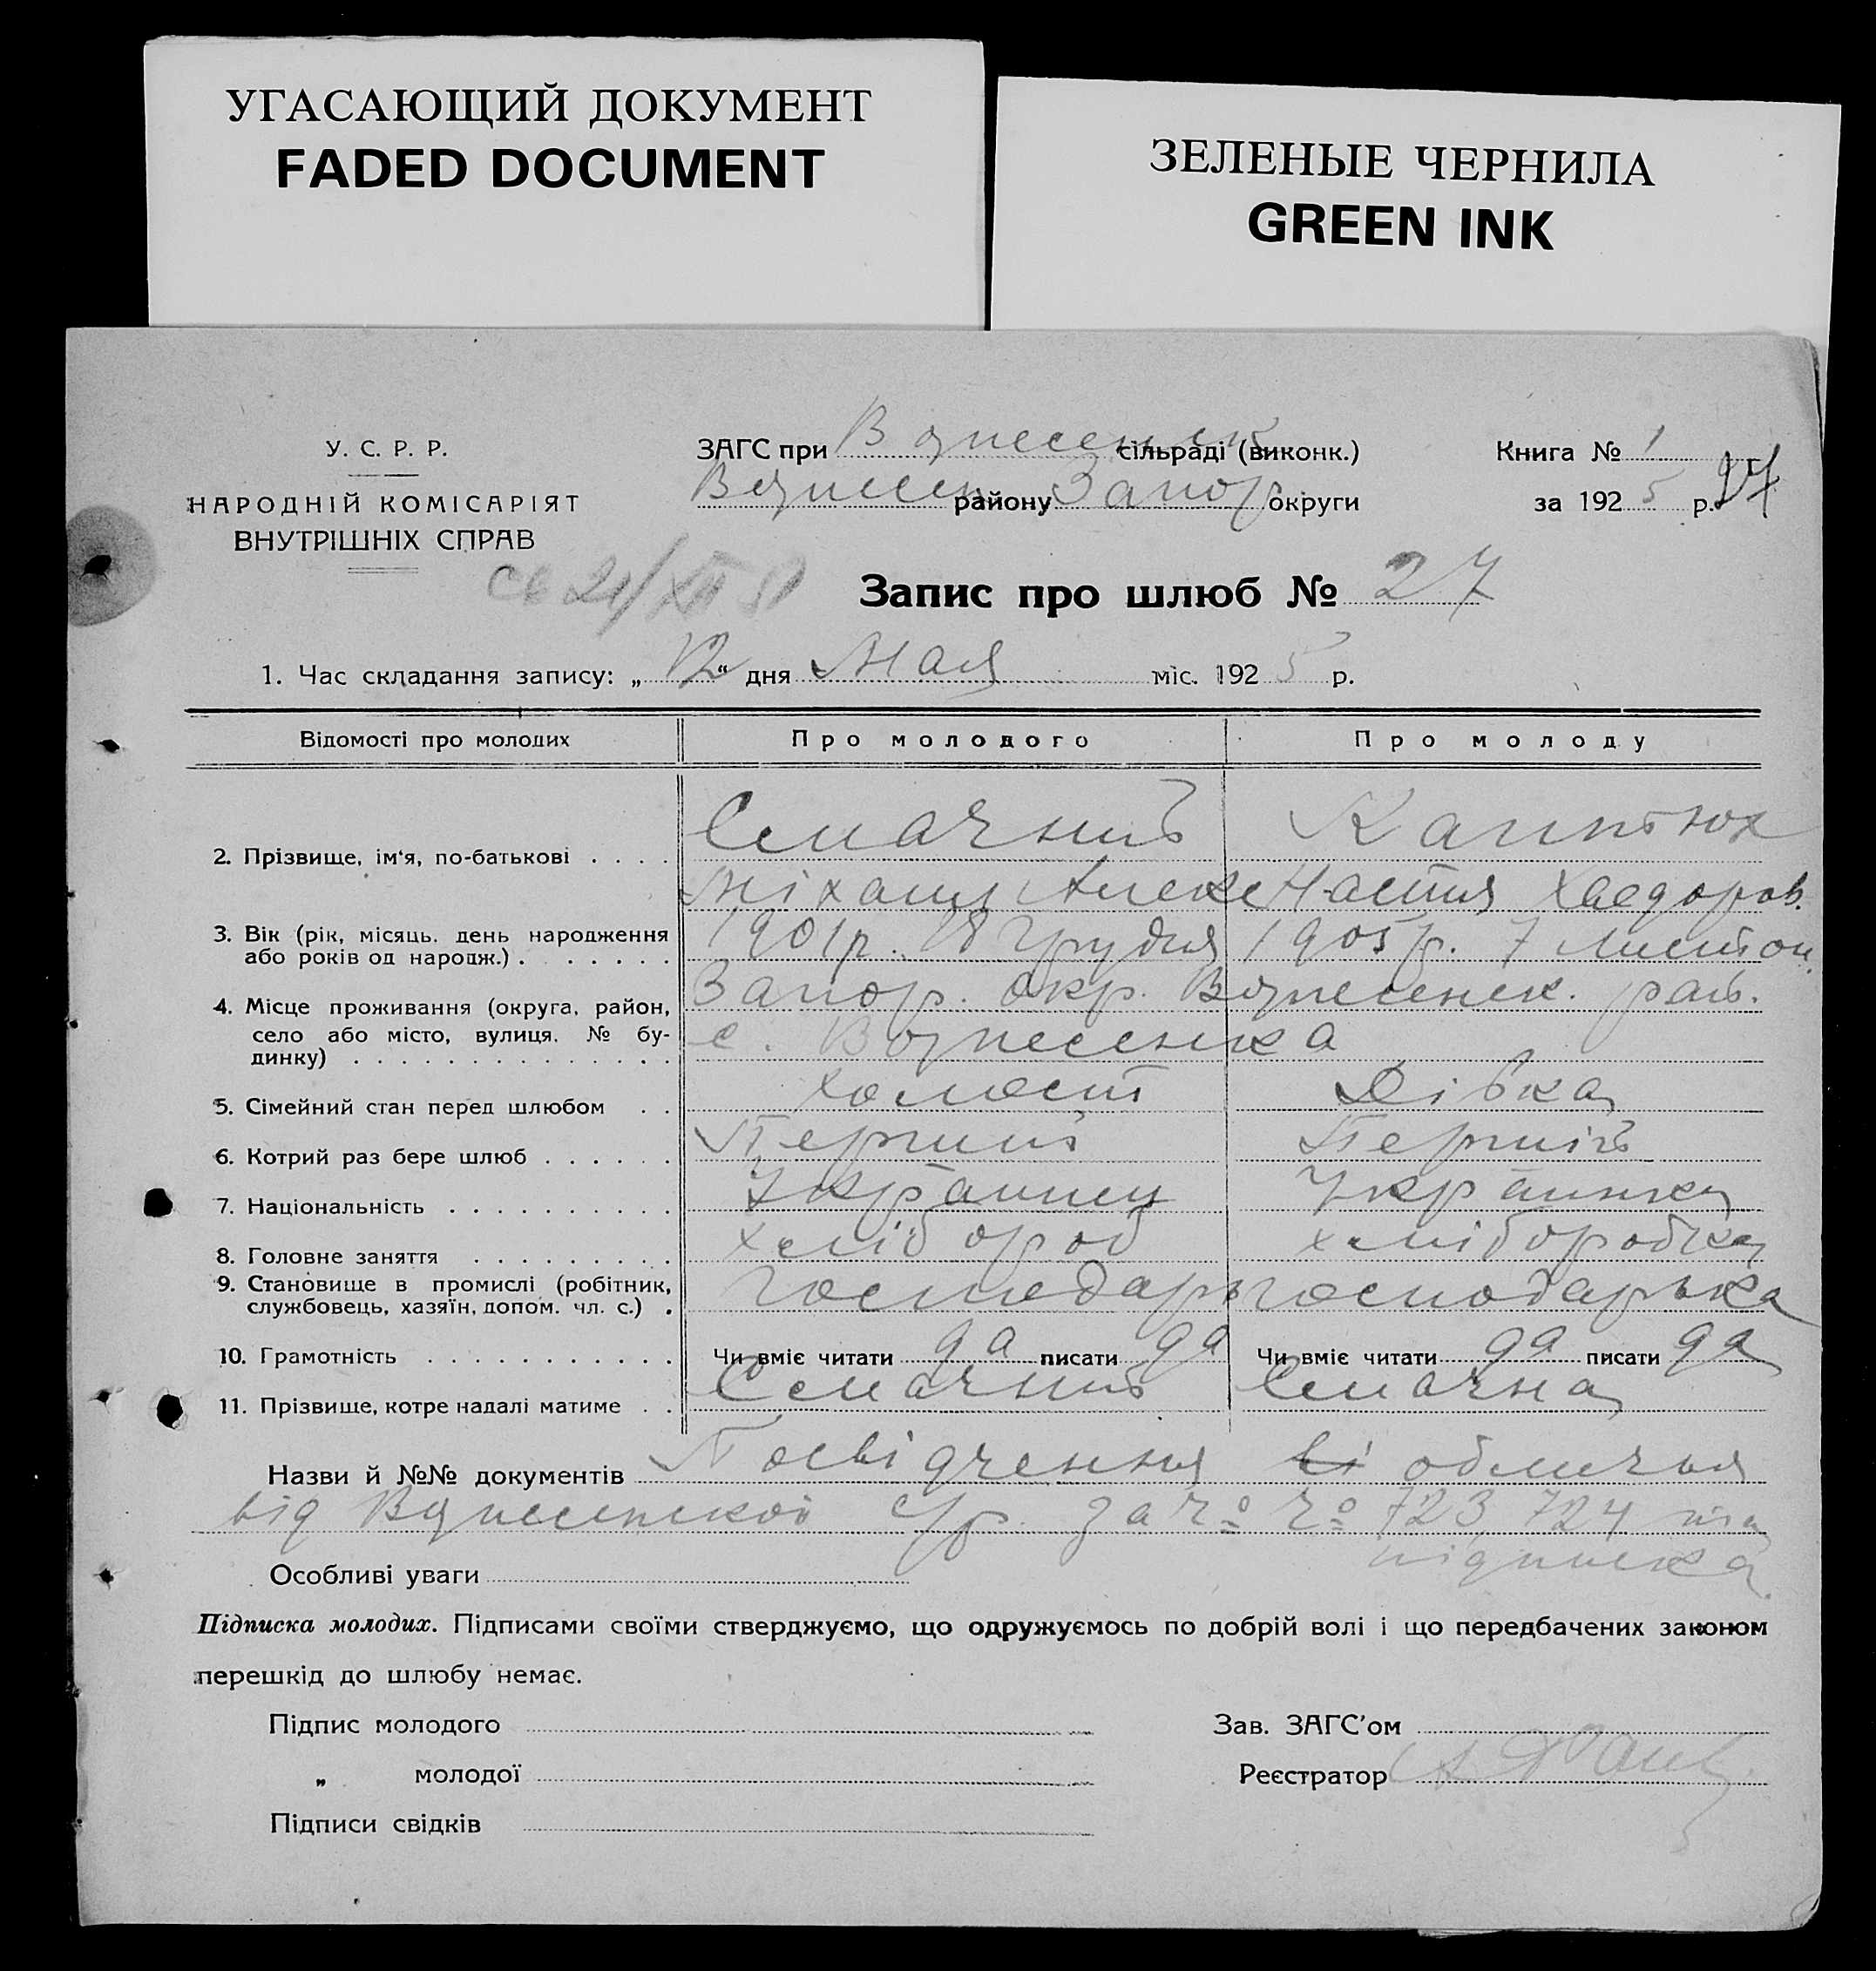 УГАСАЮЩИЙ ДОКУМЕНТ
FADED DOCUMENT
ЗЕЛЕНЫЕ ЧЕРНИЛА
GREEN INK
У. С. Р. Р.
НАРОДНІЙ КОМІСАРІЯТ
ВНУТРІШНІХ СПРАВ
ЗАГС при Вознесенск сільраді (виконк.)
Вознесен району Запор. округи
Книга № 1
за 1925 р. 27
Св 21/XII 51
Запис про шлюб № 27
1. Час складання запису: „12“ дня Мая міс. 1925 р.
Відомості про молодих Про молодого Про молоду
2. Прізвище, ім‘я, по-батькові Смачний Каптюх
Міхаил Алекс Настия Хведоров.
3. Вік (рік, місяць, день народження або років од народж.) 1901р. 18 Грудня 1905р. 7 Листоп.
4. Місце проживання (округа, район, село або місто, вулиця, № будинку) Запор. окр. Вознесенск. рай.
с. Вознесенка
5. Сімейний стан перед шлюбом холост Дівка
6. Котрий раз бере шлюб Перший Перший
7. Національність Українец Українка
8. Головне заняття хлібороб хліборобка
9. Становище в промислі (робітник, службовець, хазяїн, допом. чл. с.) Господарь господарька
10. Грамотність Чи вміє читати да писати да Чи вміє читати да писати да
11. Прізвище, котре надалі матиме Смачний Смачна
Назви й №№ документів Посвідчення обличья
від Вознесенской с/р. за 723, 724 та
підписка
Особливі уваги
Підписка молодих. Підписами своїми стверджуємо, що одружуємось по добрій волі і що передбачених законом
перешкід до шлюбу немає.
Підпис молодого
„ молодої
Підписи свідків
Зав. ЗАГС’ом
Реєстратор